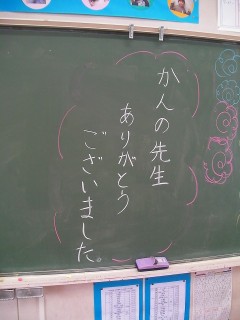 かんの先生
ありがとう
ございました。